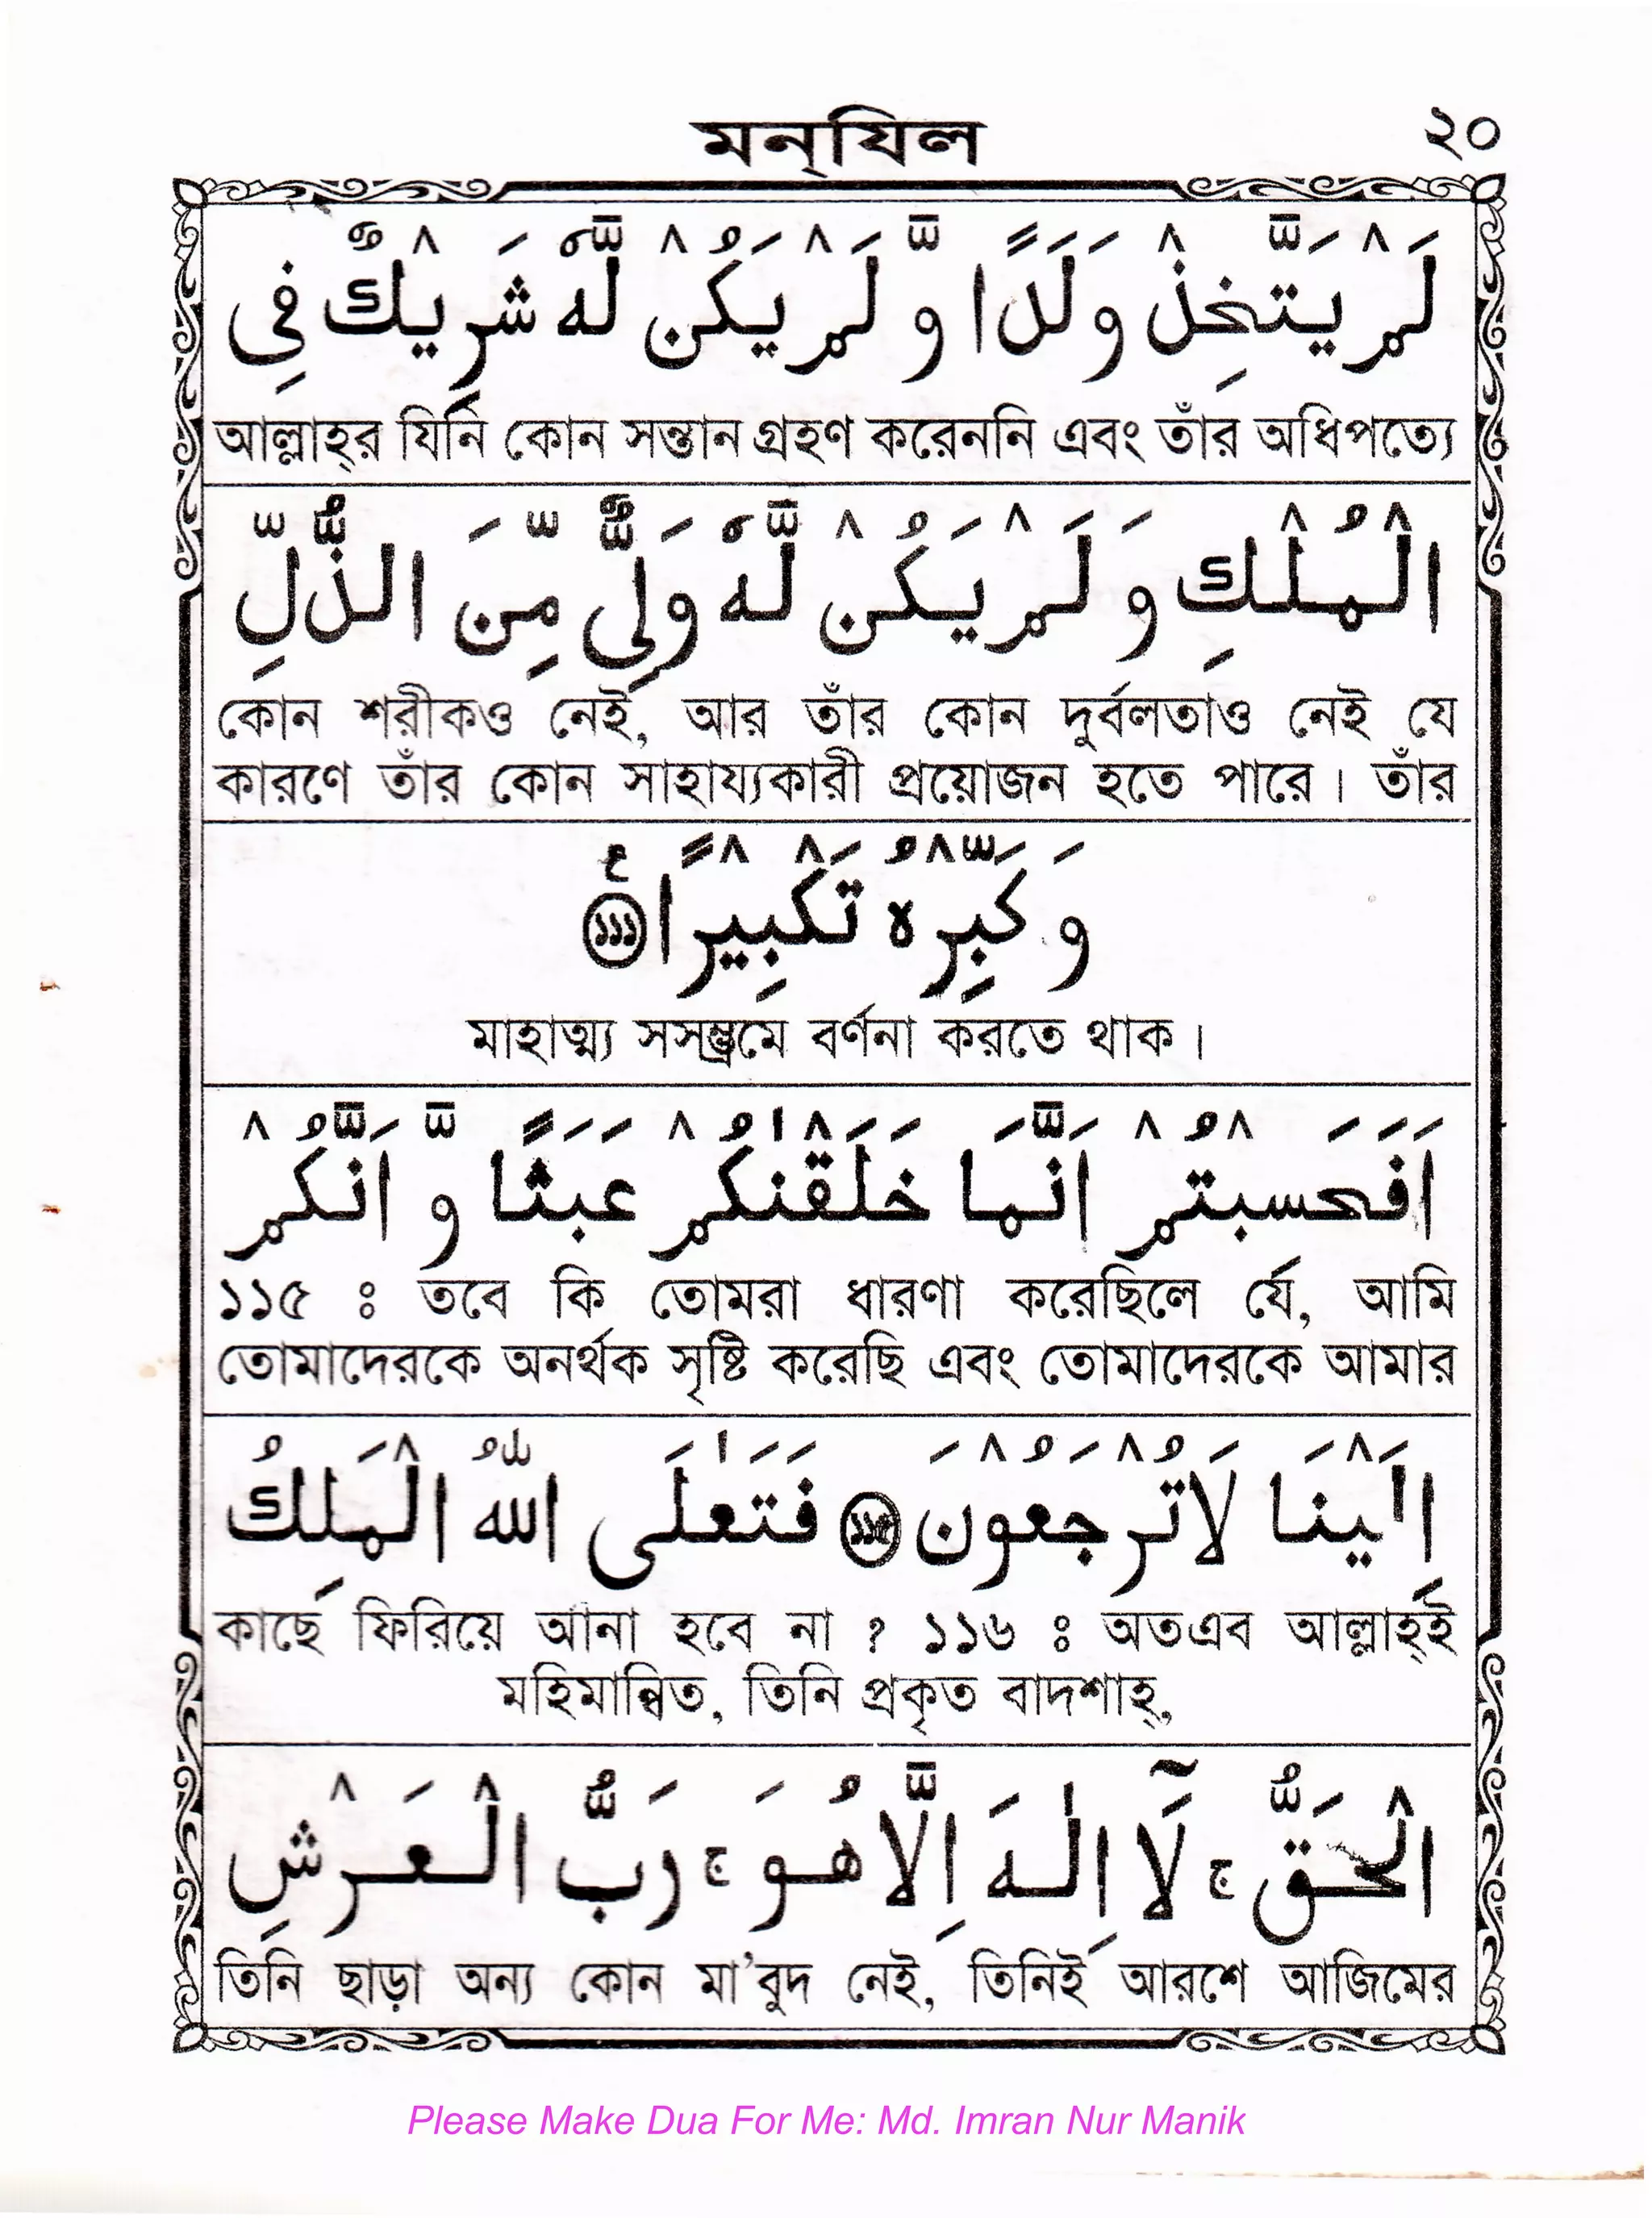 মন্‌যিল ২০
لَمْ يَتَّخِذْ وَلَدًا وَّ لَمْ يَكُنْ لَّهٗ شَرِيْكٌ فِى
আল্লাহ্‌র যিনি কোন সন্তান গ্রহণ করেননি এবং তাঁর অধিপত্যে
الْمُلْكِ وَ لَمْ يَكُنْ لَّهٗ وَلِىٌّ مِّنَ الذُّلِّ
কোন শরীকও নেই, আর তাঁর কোন দুর্বলতাও নেই যে
কারণে তাঁর কোন সাহায্যকারী প্রয়োজন হতে পারে। তাঁর
وَ كَبِّرْهُ تَكْبِيْرًا ১১১ ع
মাহাত্ম্য সসম্ভ্রমে বর্ণনা করতে থাক।
اَفَحَسِبْتُمْ اَنَّمَا خَلَقْنٰكُمْ عَبَثًا وَّ اَنَّكُمْ
১১৫ ঃ তবে কি তোমরা ধারণা করেছিলে যে, আমি
তোমাদেরকে অনর্থক সৃষ্টি করেছি এবং তোমাদেরকে আমার
اِلَيْنَا لَا تُرْجَعُوْنَ ১১৫ فَتَعٰلَى اللّٰهُ الْمَلِكُ
কাছে ফিরিয়ে আনা হবে না ? ১১৬ ঃ অতএব আল্লাহ্‌ই
মহিমান্বিত, তিনি প্রকৃত বাদশাহ্,
الْحَقُّ ج لَآ اِلٰهَ اِلَّا هُوَ ج رَبُّ الْعَرْشِ
তিনি ছাড়া অন্য কোন মা'বুদ নেই, তিনিই আরশে আজিমের
Please Make Dua For Me: Md. Imran Nur Manik